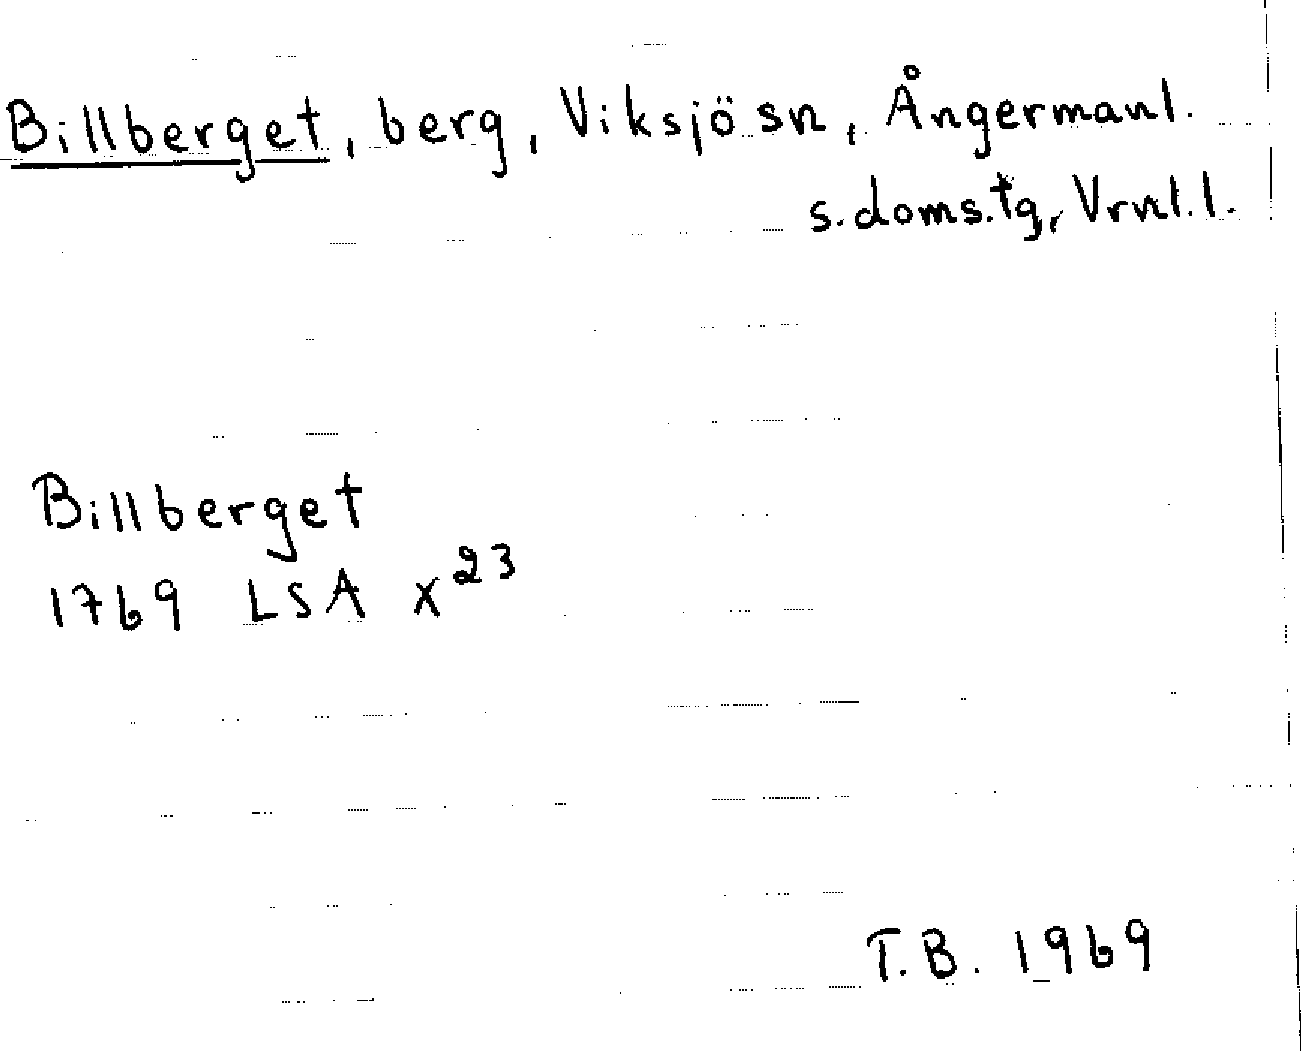 Billberget, berg, Viksjö sn, Ångermanl.
s. doms.tg, Vrnl.l.
Billberget
1769 LSA X23
T.B. 1969